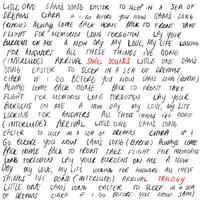 LITTLE ONE SAMS SONG EASTER TO SLEEP IN A SEA OF
DREAMS CIARA IF I GO BEFORE YOU NOW SAMS SONG
(REPRISE) ALWAYS COME BACK HOME BACK TO FRONT TAKE
FLIGHT FOR MEMORIES LONG FORGOTTEN LAY YOUR
BURDENS ON ME A NEW DAY MY LOVE, MY LIFE LOOKING
FOR ANSWERS ALL THESE THINGS I'VE DONE
(INTERLUDE) ARRIVAL SMALL SOUNDS LITTLE ONE SAMS
SONG EASTER TO SLEEP IN A SEA OF DREAMS
CIARA IF I GO BEFORE YOU NOW SAMS SONG (REPRISE)
ALWAYS COME BACK HOME BACK TO FRONT TAKE
FLIGHT FOR MEMORIES LONG FORGOTTEN LAY YOUR
BURDENS ON ME A NEW DAY MY LOVE, MY LIFE
LOOKING FOR ANSWERS ALL THESE THINGS I'VE DONE
(INTERLUDE) ARRIVAL LITTLE ONE SAMS SONG
EASTER TO SLEEP IN A SEA OF DREAMS CIARA IF I
GO BEFORE YOU NOW SAMS SONG (REPRISE) ALWAYS COME
BACK HOME BACK TO FRONT TAKE FLIGHT FOR MEMORIES
LONG FORGOTTEN LAY YOUR BURDENS ON ME A NEW
DAY MY LOVE, MY LIFE LOOKING FOR ANSWERS ALL THESE
THINGS I'VE DONE (INTERLUDE) ARRIVAL TRILOGY
LITTLE ONE SAMS SONG EASTER TO SLEEP IN A SEA
OF DREAMS CIARA IF I GO BEFORE YOU NOW SAMS